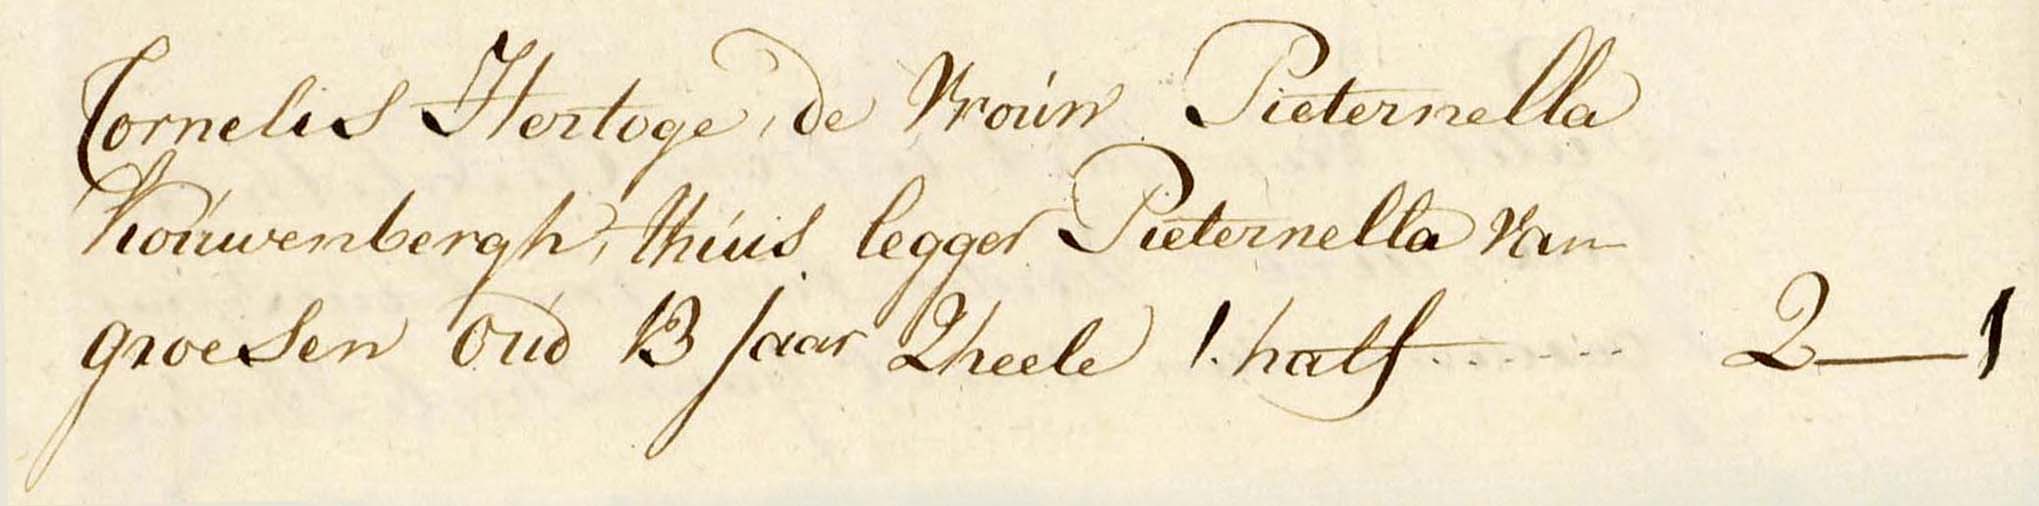 Cornelis Hertoge, de Vroúw Pieternella
Koúwenbergh, thúis legger Pieternella van
groesen oúd 13 Jaar 2 heele 1. half ...... 2 — 1